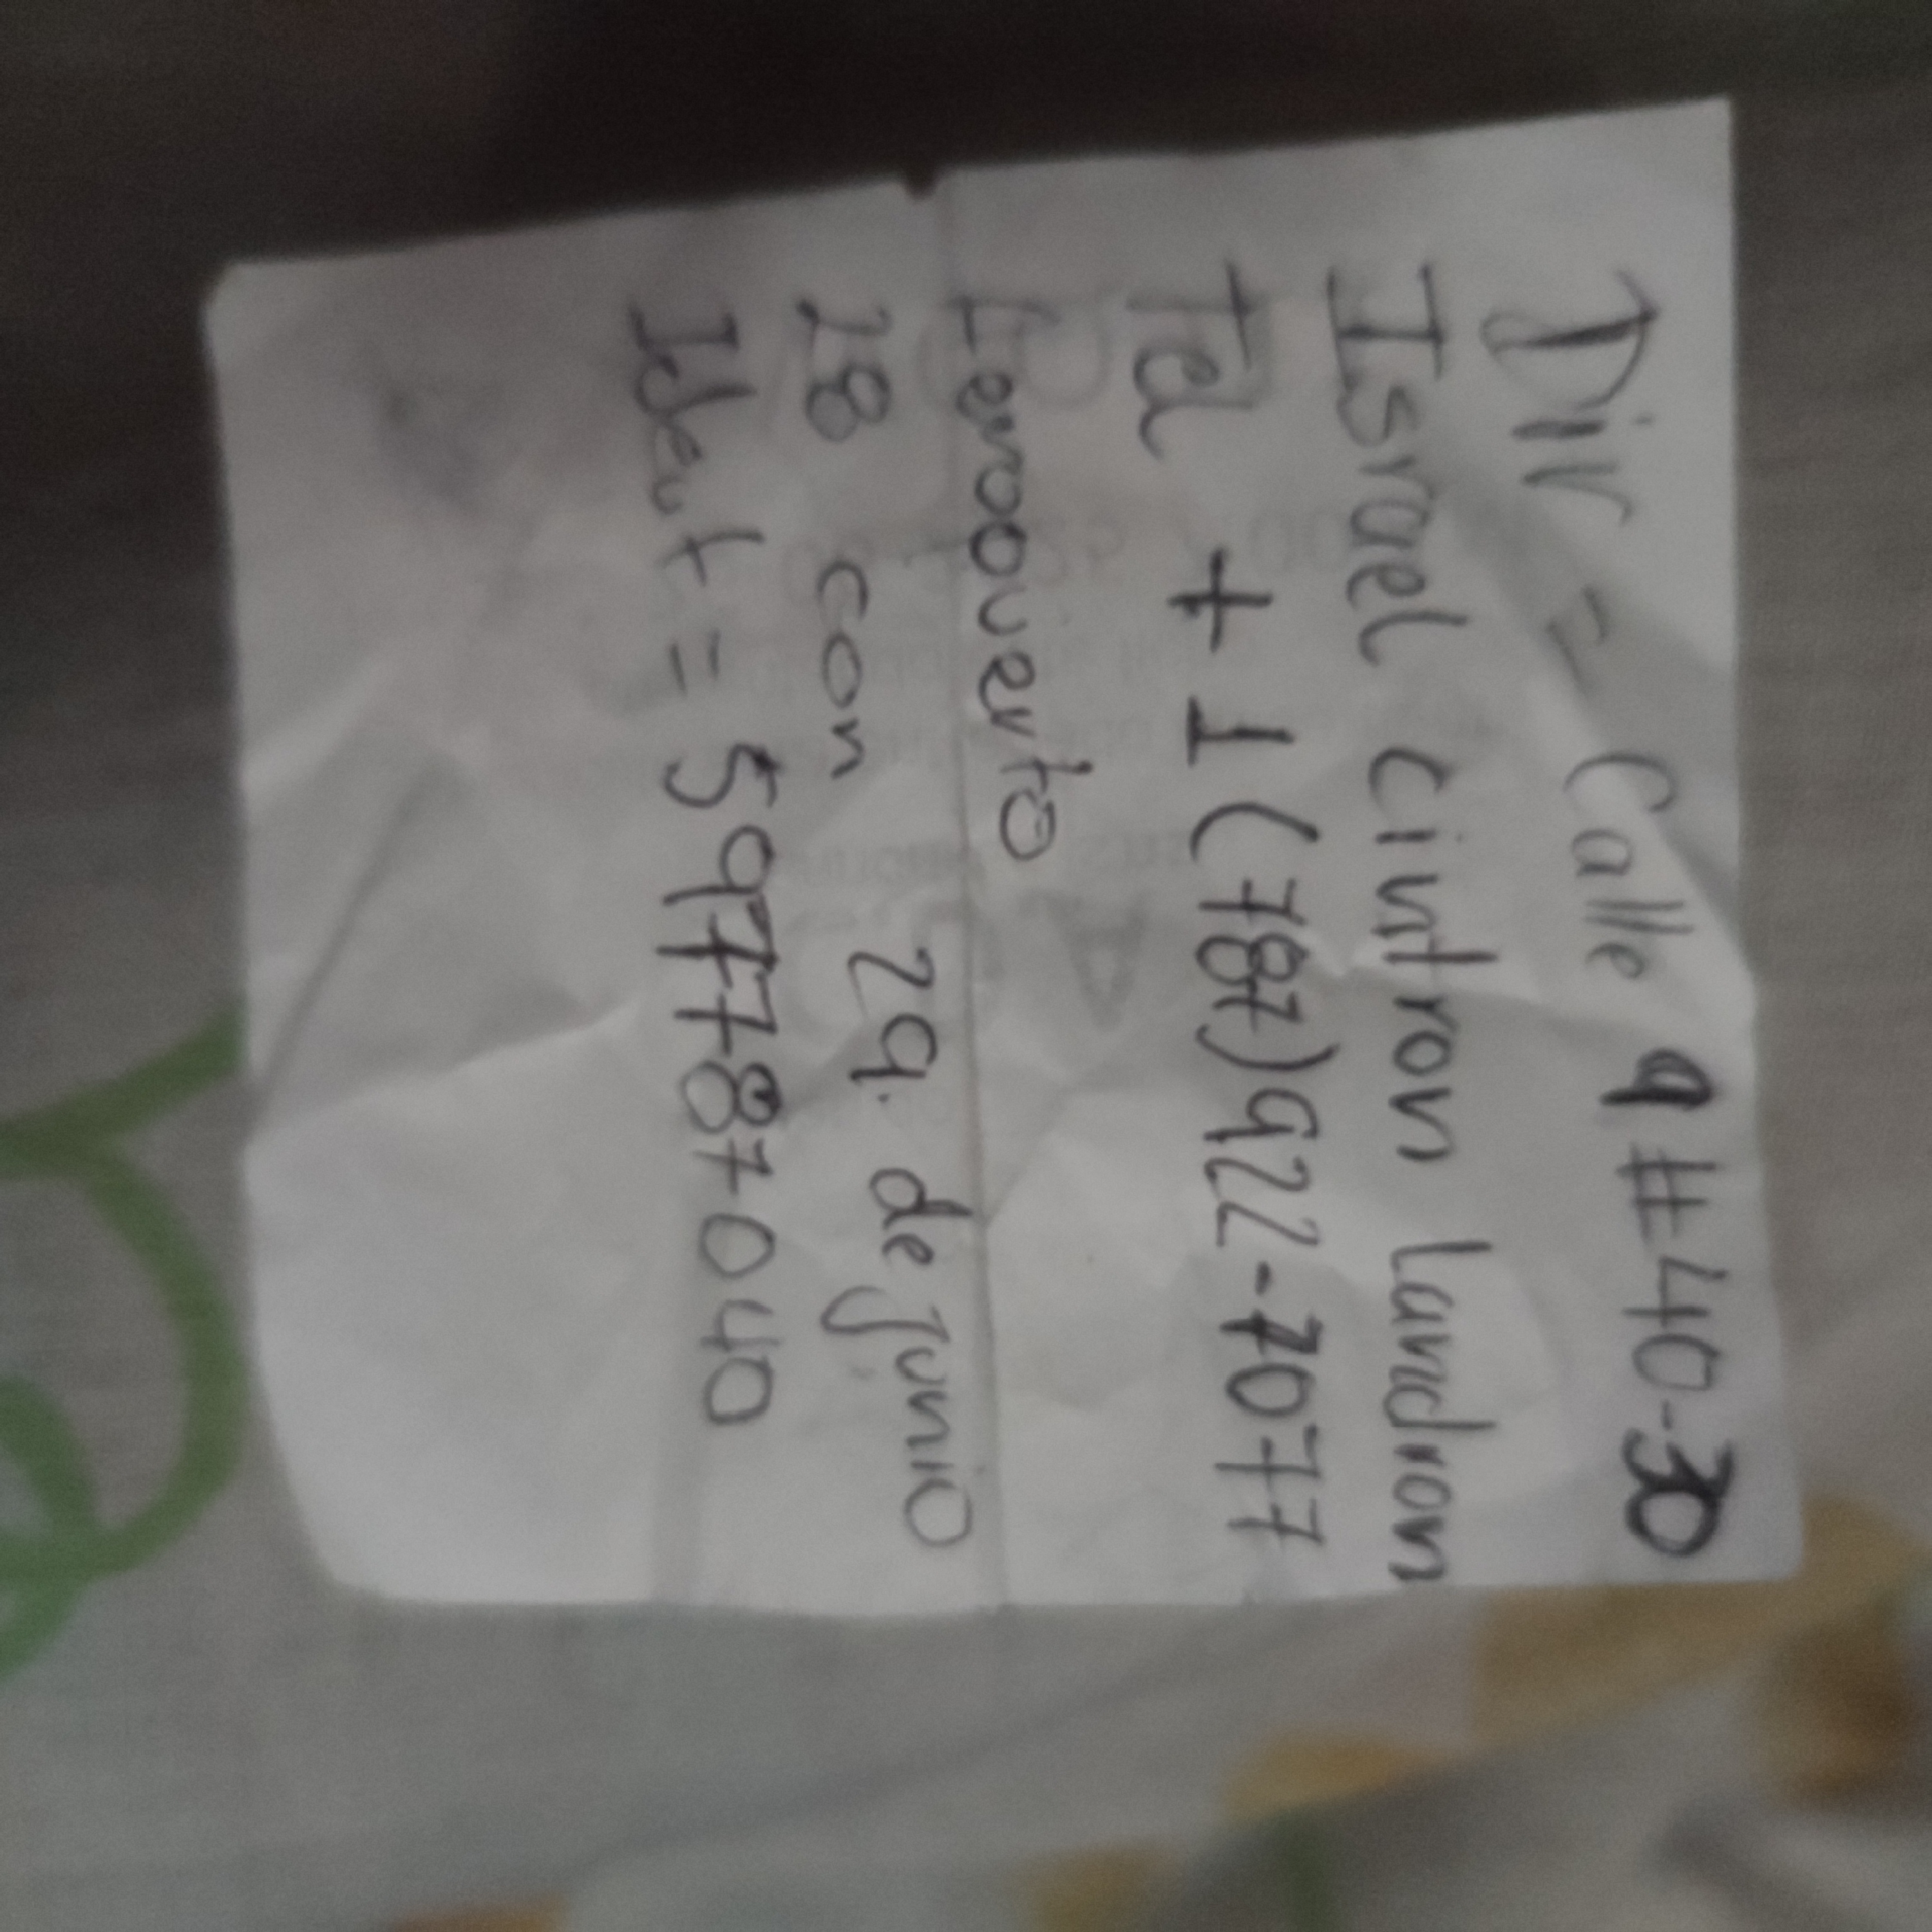 Dir = Calle 9 #40-30
Israel Cintron Landron
Tel + 1 (787)922-7077
28 con 29. de Junio
Ident = 5977787040